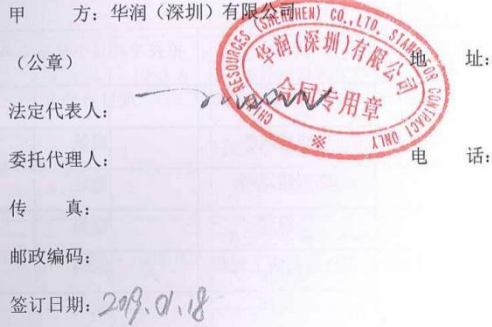 甲 方：华润（深圳）有限公司
CHINA RESOURCES (SHENZHEN) CO., LTD. STAMP FOR CONTRACT ONLY
华润(深圳)有限公司
合同专用章
（公章） 地 址：
法定代表人：
委托代理人： 电 话：
传 真：
邮政编码：
签订日期：2019.01.18